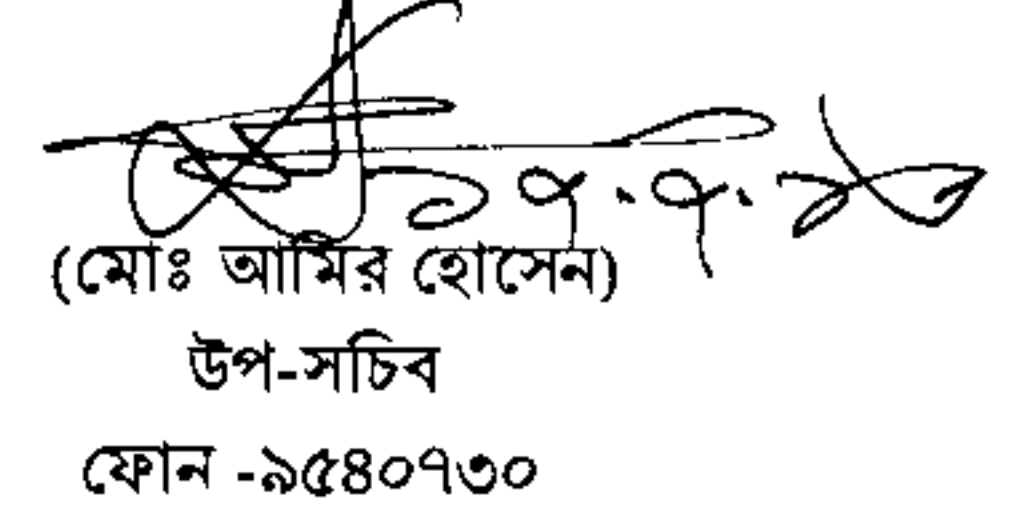 (মোঃ আমির হোসেন)
উপ-সচিব
ফোন -৯৫৪০৭৩০